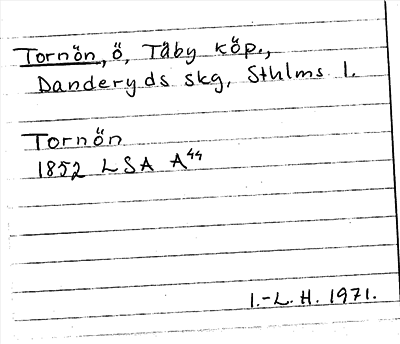 Tornön, ö, Täby köp.,
Danderyds skg, Sthlms l.
Tornön
1852 LSA A44
I.-L. H. 1971.